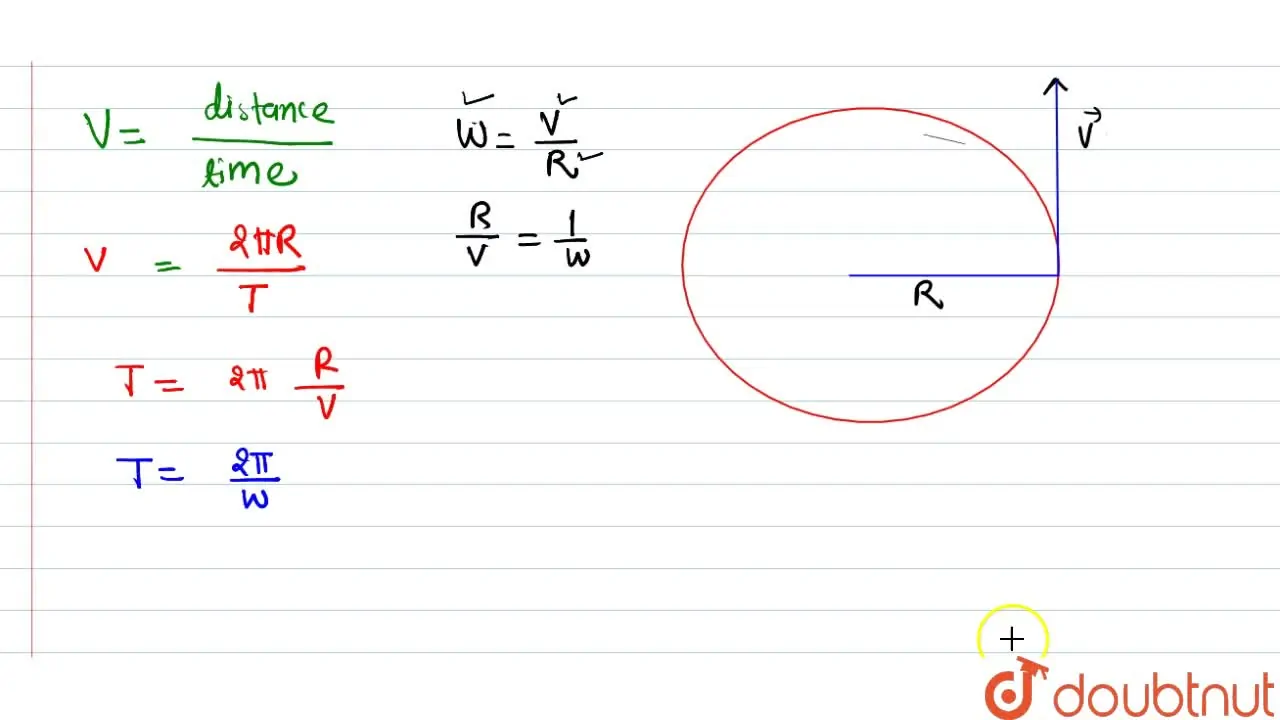 V = distance / time
v = 2πR / T
T = 2π R / V
T = 2π / W
W = V / R
R / V = 1 / W
V⃗
R
doubtnut